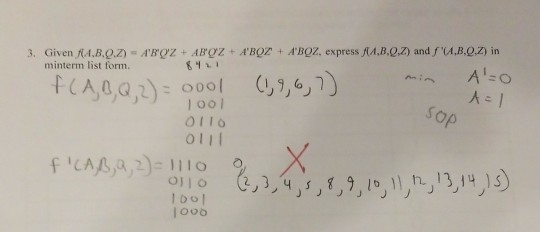 3. Given f(A,B,Q,Z) = A'B'Q'Z + AB'Q'Z + A'BQZ' + A'BQZ, express f(A,B,Q,Z) and f'(A,B,Q,Z) in
minterm list form.
8421
f(A,B,Q,Z) = 0001 (1,9,6,7) min A'=0
1001 A=1
0110 SOP
0111
f'(A,B,Q,Z) = 1110 0,
0110 (2,3,4,5,8,9,10,11,12,13,14,15)
1001
1000